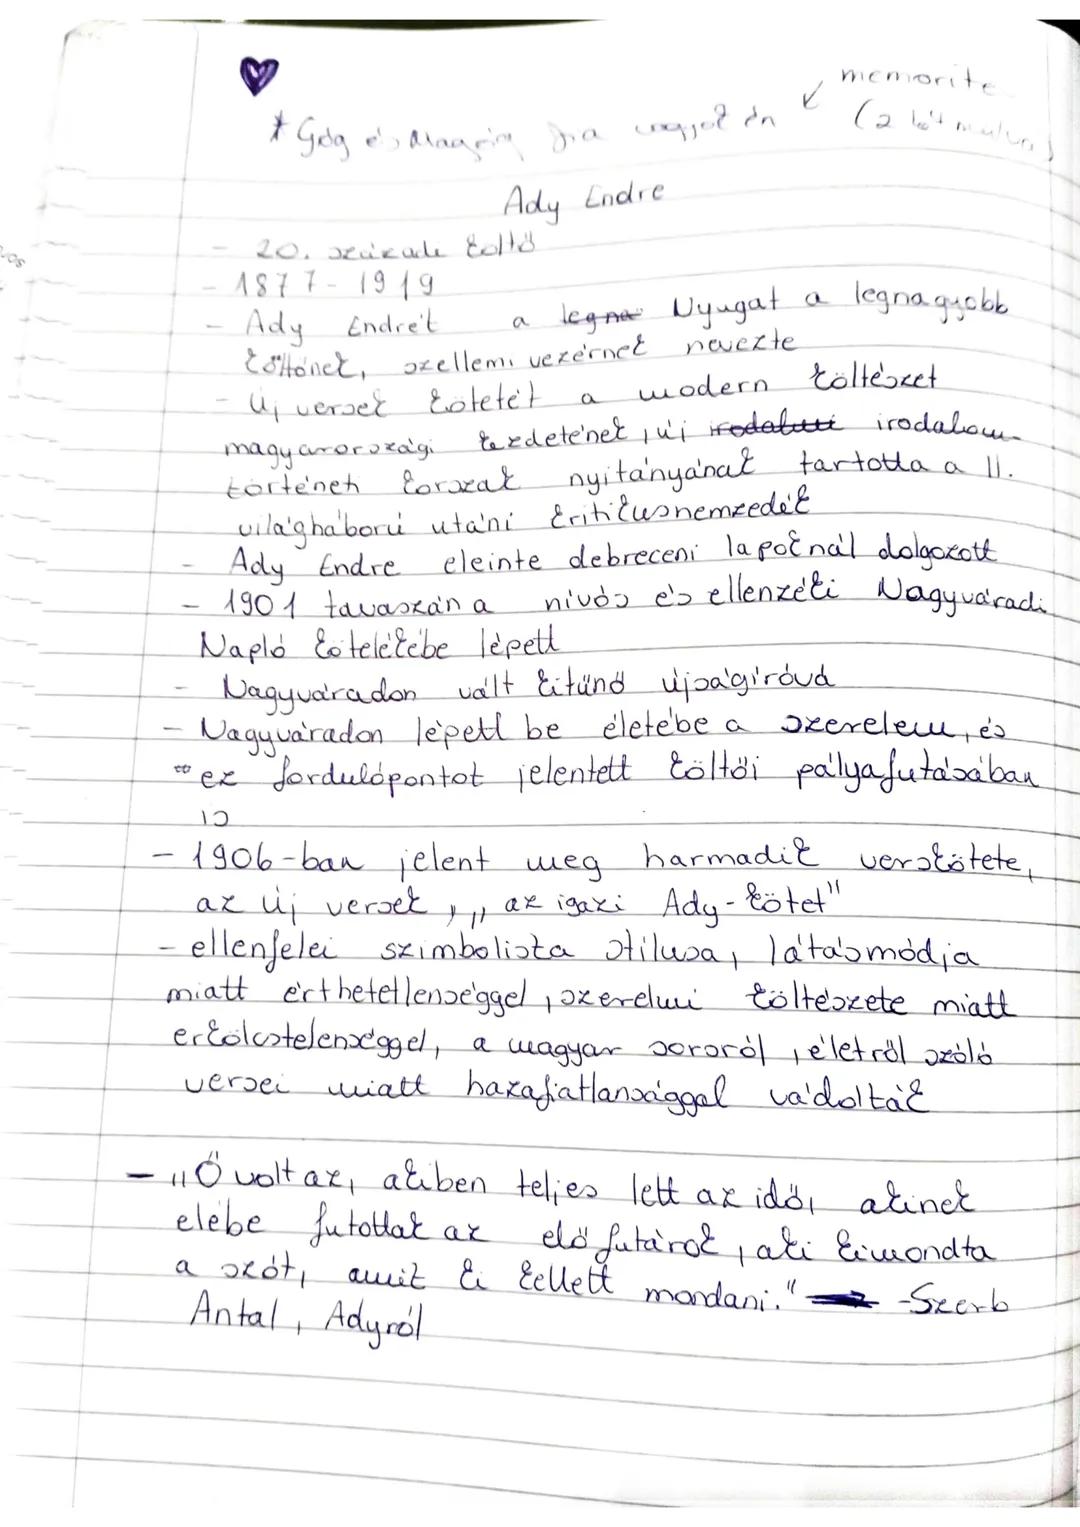 memorite
* Góg és Magóg fia vagyok én ↙ (2 hét mulva)
Ady Endre
- 20. századi költő
- 1877-1919
- Ady Endrét a legna Nyugat a legnagyobb
költőnek, szellemi vezérnek nevezte
- Új versek kötetét a modern költészet
magyarországi kezdetének, új irodalmi irodalom-
történeti korszak nyitányának tartotta a II.
világháború utáni kritikusnemzedék
- Ady Endre eleinte debreceni lapoknál dolgozott
- 1901 tavaszán a nívós és ellenzéki Nagyváradi
Napló kötelékébe lépett
- Nagyváradon vált kitűnő újságíróvá
- Nagyváradon lépett be életébe a szerelem, és
ez fordulópontot jelentett költői pályafutásában
is
- 1906-ban jelent meg harmadik verskötete,
az Új versek, „az igazi Ady-kötet"
- ellenfelei szimbolista stílusa, látásmódja
miatt érthetetlenséggel, szerelmi költészete miatt
erkölcstelenséggel, a magyar sorsról, életről szóló
versei miatt hazafiatlansággal vádolták
- „Ő volt az, akiben teljes lett az idő, akinek
elébe futottak az előfutárok, aki kimondta
a szót, amit ki kellett mondani." - Szerb
Antal, Adyról